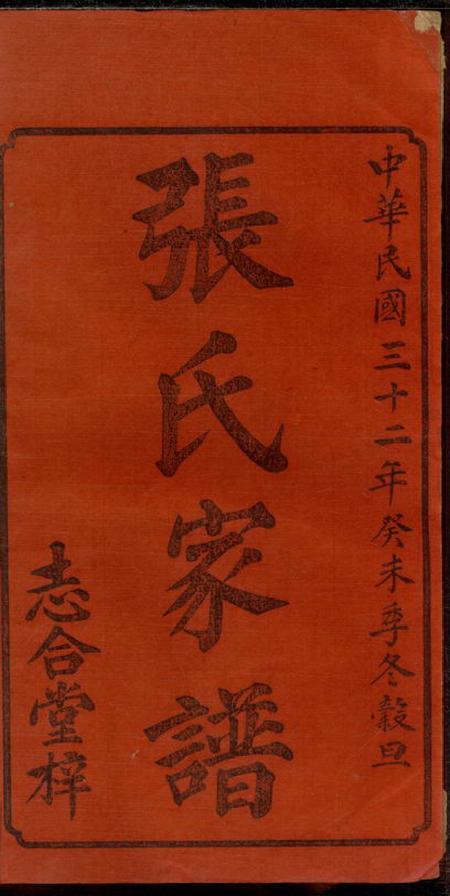 中華民國三十二年癸未季冬穀旦
張氏家譜
志合堂梓